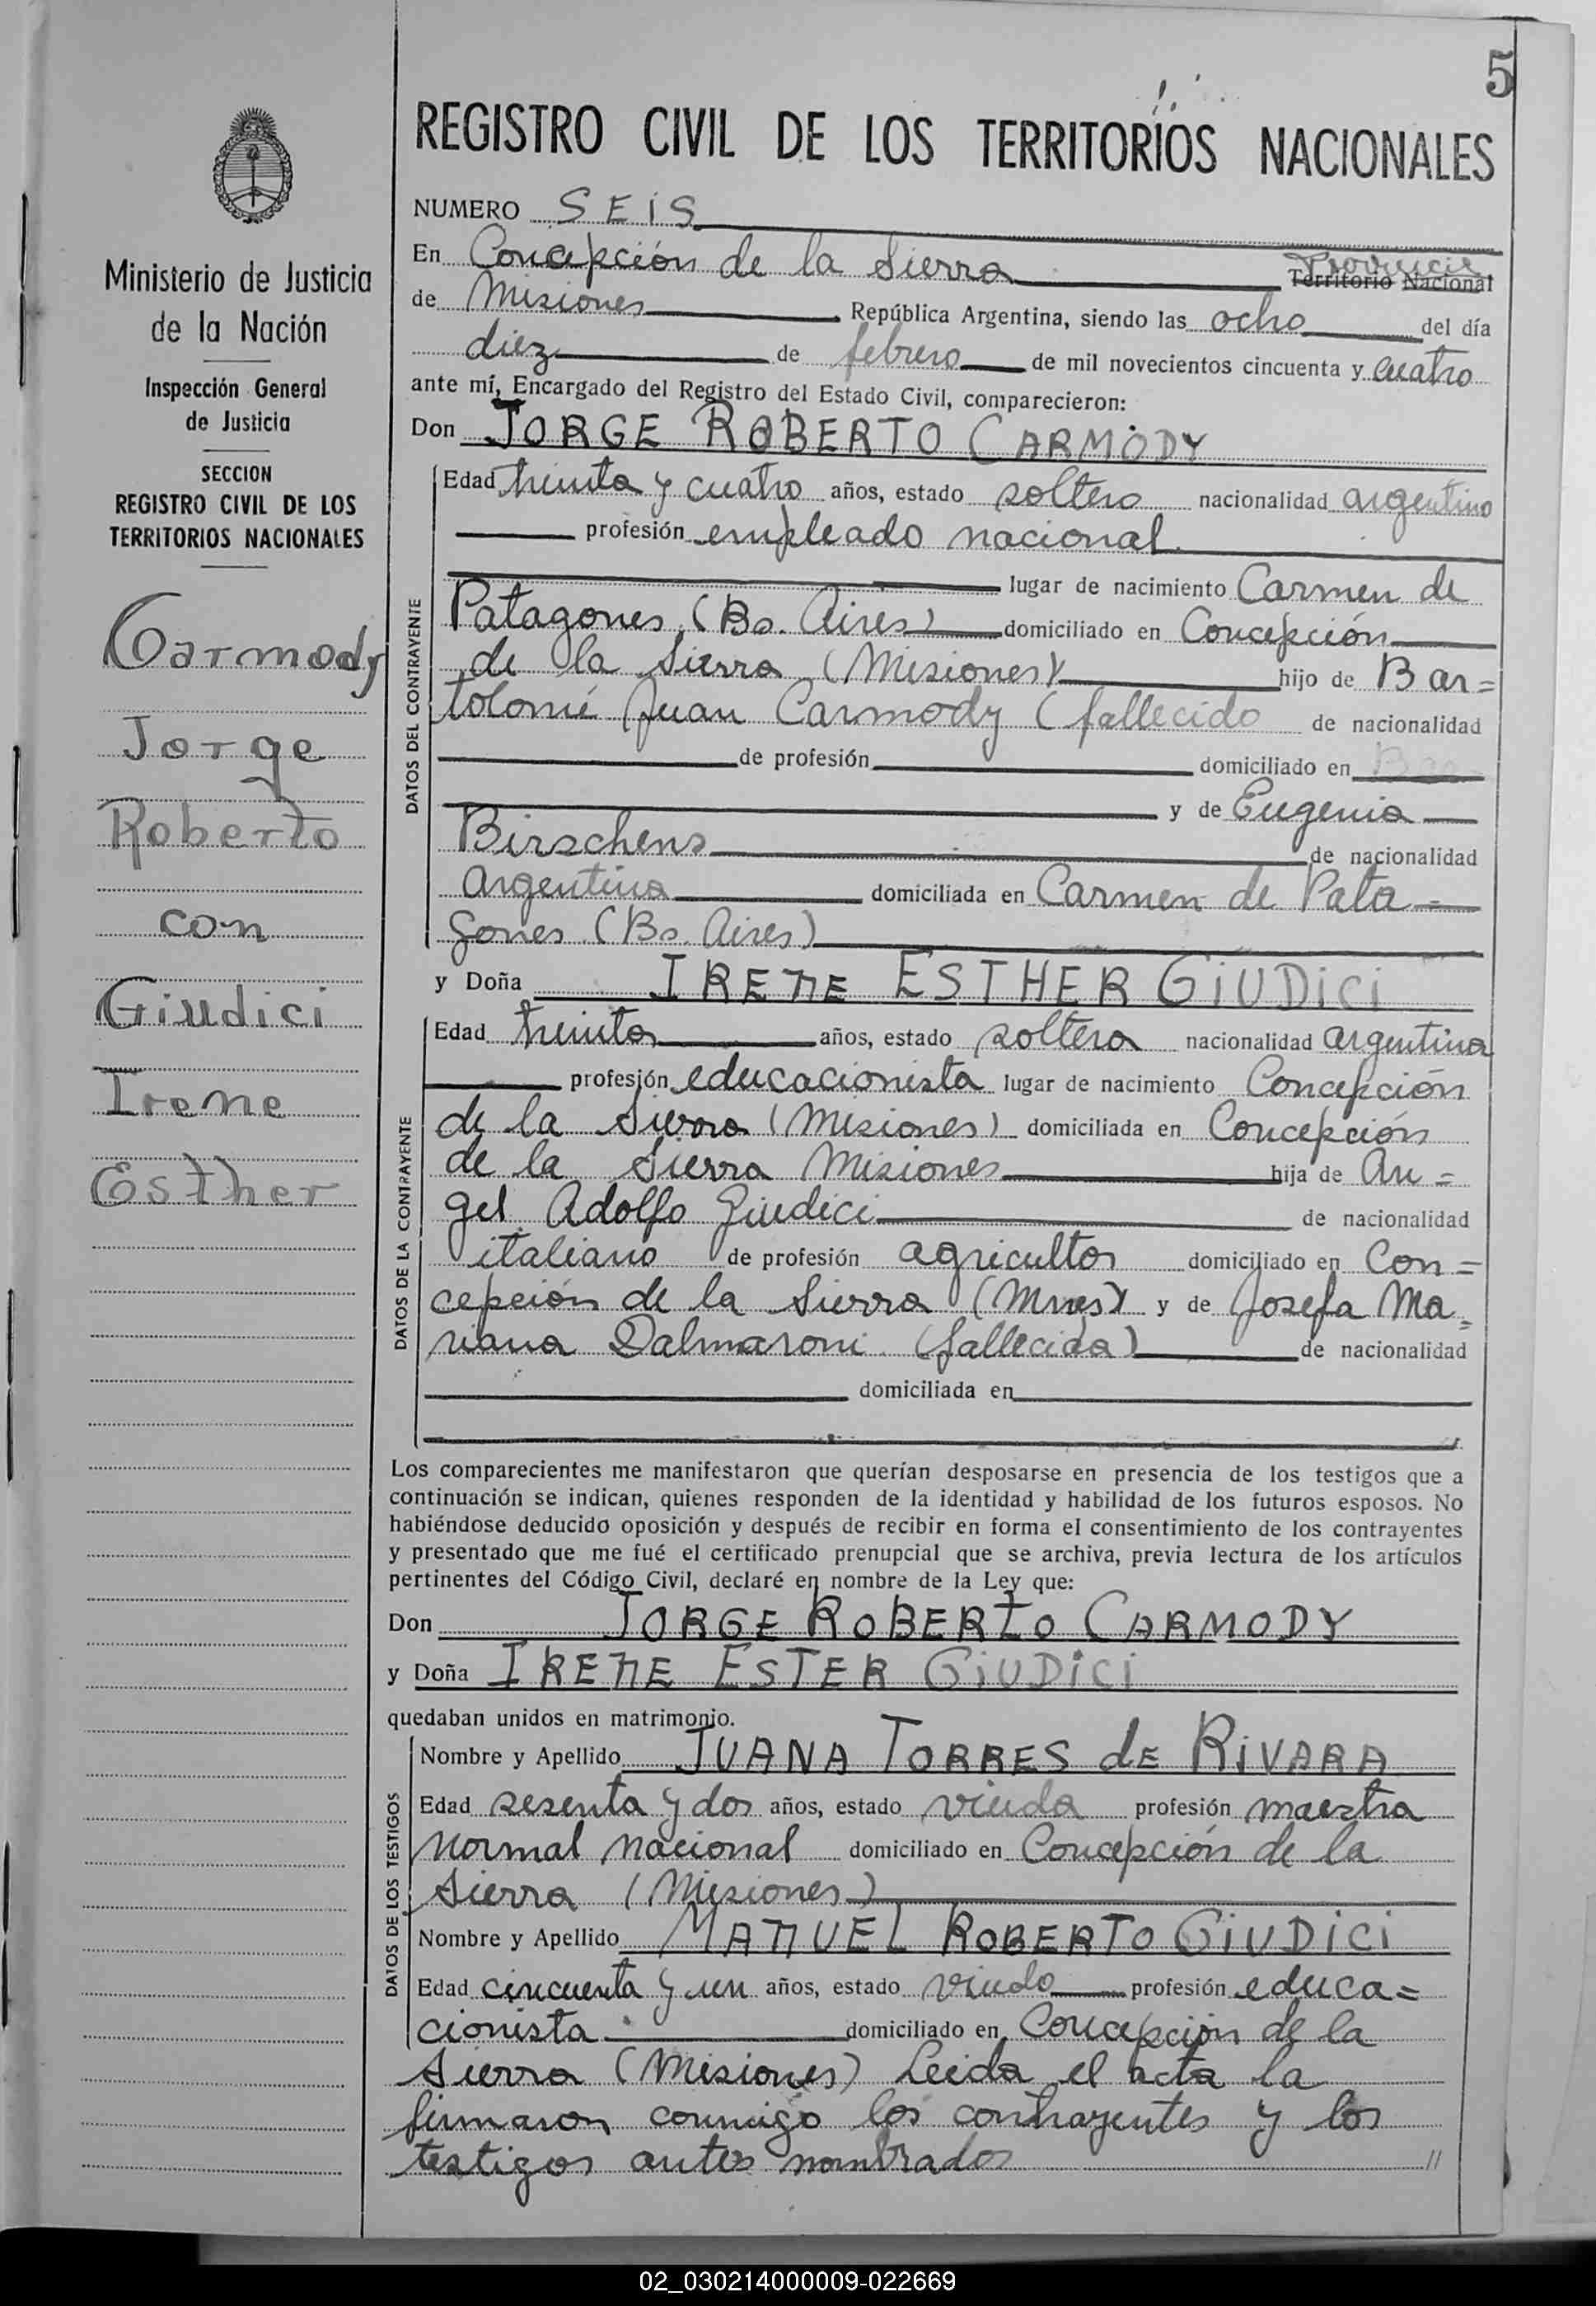 5
REGISTRO CIVIL DE LOS TERRITORIOS NACIONALES
Ministerio de Justicia
de la Nación
Inspección General
de Justicia
SECCION
REGISTRO CIVIL DE LOS
TERRITORIOS NACIONALES
Carmody
Jorge
Roberto
con
Giudici
Irene
Esther
NUMERO SEIS
En Concepción de la Sierra Provincia
Territorio Nacional
de Misiones República Argentina, siendo las ocho del día
diez de febrero de mil novecientos cincuenta y cuatro
ante mí, Encargado del Registro del Estado Civil, comparecieron:
Don JORGE ROBERTO CARMODY
DATOS DEL CONTRAYENTE
Edad treinta y cuatro años, estado soltero nacionalidad argentino
profesión empleado nacional
lugar de nacimiento Carmen de
Patagones (Bs. Aires) domiciliado en Concepción
de la Sierra (Misiones) hijo de Bar=
tolomé Juan Carmody (fallecido de nacionalidad
de profesión domiciliado en
y de Eugenia
Birschens de nacionalidad
argentina domiciliada en Carmen de Pata=
gones (Bs. Aires)
y Doña IRENE ESTHER GIUDICI
DATOS DE LA CONTRAYENTE
Edad treinta años, estado soltera nacionalidad argentina
profesión educacionista lugar de nacimiento Concepción
de la Sierra (Misiones) domiciliada en Concepción
de la Sierra Misiones hija de An=
gel Adolfo Giudici de nacionalidad
italiano de profesión agricultor domiciliado en Con=
cepción de la Sierra (Mnes) y de Josefa Ma=
riana Dalmaroni (fallecida) de nacionalidad
domiciliada en
Los comparecientes me manifestaron que querían desposarse en presencia de los testigos que a
continuación se indican, quienes responden de la identidad y habilidad de los futuros esposos. No
habiéndose deducido oposición y después de recibir en forma el consentimiento de los contrayentes
y presentado que me fué el certificado prenupcial que se archiva, previa lectura de los artículos
pertinentes del Código Civil, declaré en nombre de la Ley que:
Don JORGE ROBERTO CARMODY
y Doña IRENE ESTER GIUDICI
quedaban unidos en matrimonio.
DATOS DE LOS TESTIGOS
Nombre y Apellido JUANA TORRES de RIVARA
Edad sesenta y dos años, estado viuda profesión maestra
normal nacional domiciliado en Concepción de la
Sierra (Misiones)
Nombre y Apellido MANUEL ROBERTO GIUDICI
Edad cincuenta y un años, estado viudo profesión educa=
cionista domiciliado en Concepción de la
Sierra (Misiones) Leida el acta la
firmaron conmigo los contrayentes y los
testigos antes nombrados //
02_030214000009-022669